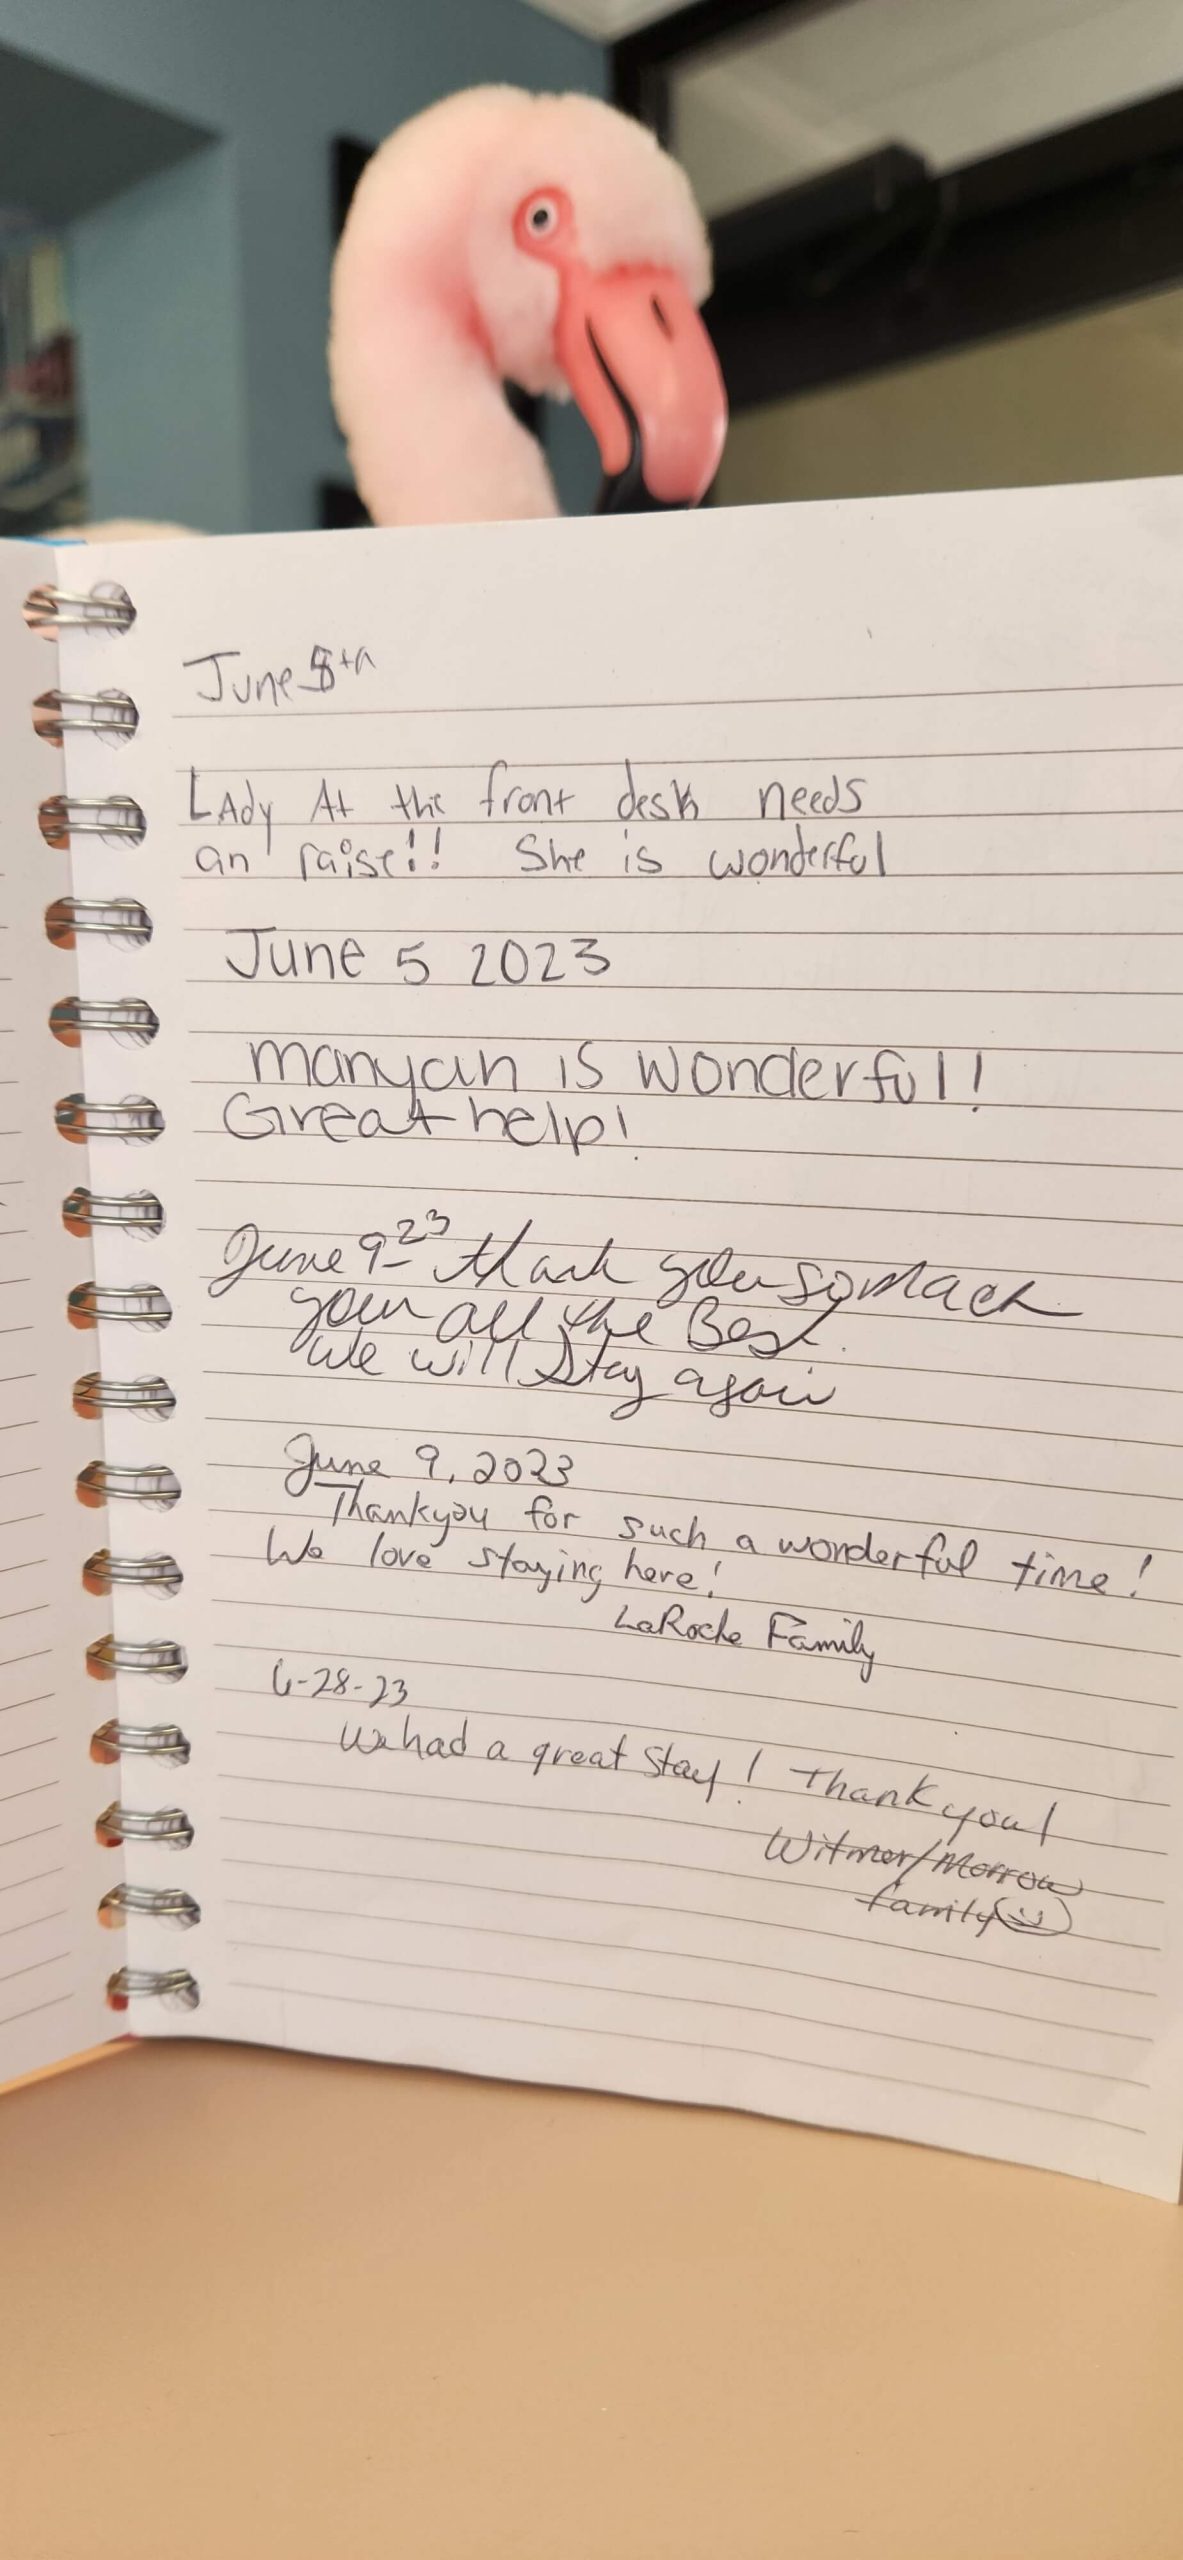 June 5th
LAdy At the front desk needs
an raise!! She is wonderful
June 5 2023
manyah is wonderful!
Great help!
June 9-23 thank you so mach
your all the Best.
We will stay again
June 9, 2023
Thankyou for such a wonderful time!
We love staying here!
LaRoche Family
6-28-23
We had a great stay! Thank you!
Witmer/Morrow
family